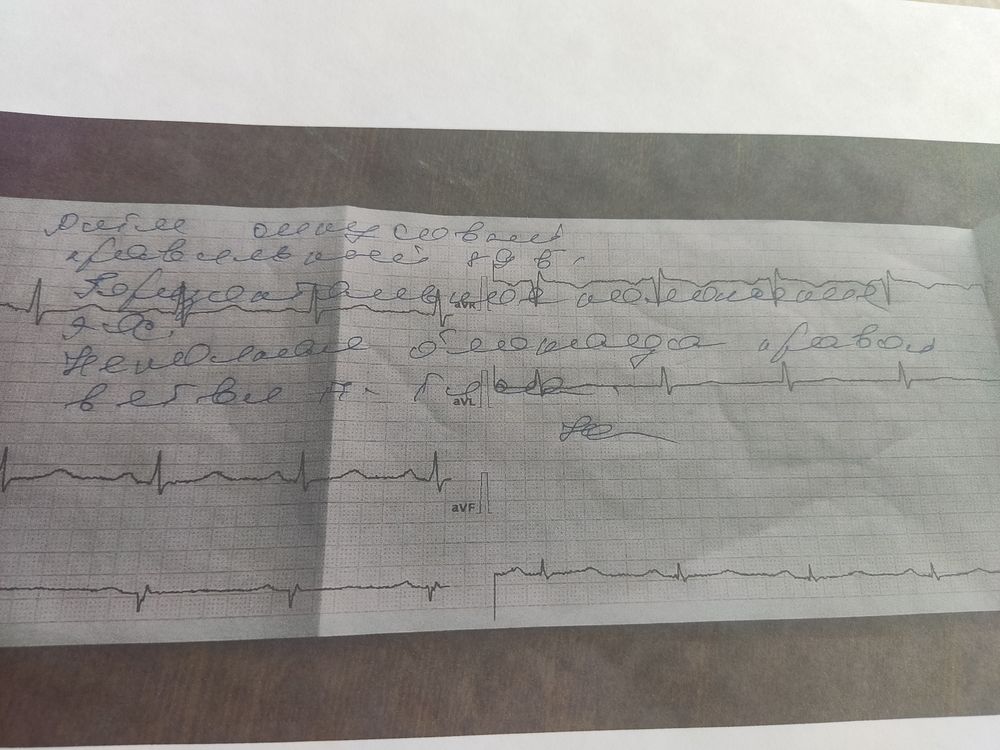 Ритм синусовый
правильный 79 в '
Горизонтальное положение
ЭОС.
Неполная блокада правой
ветви п. Гиса
aVR
aVL
aVF